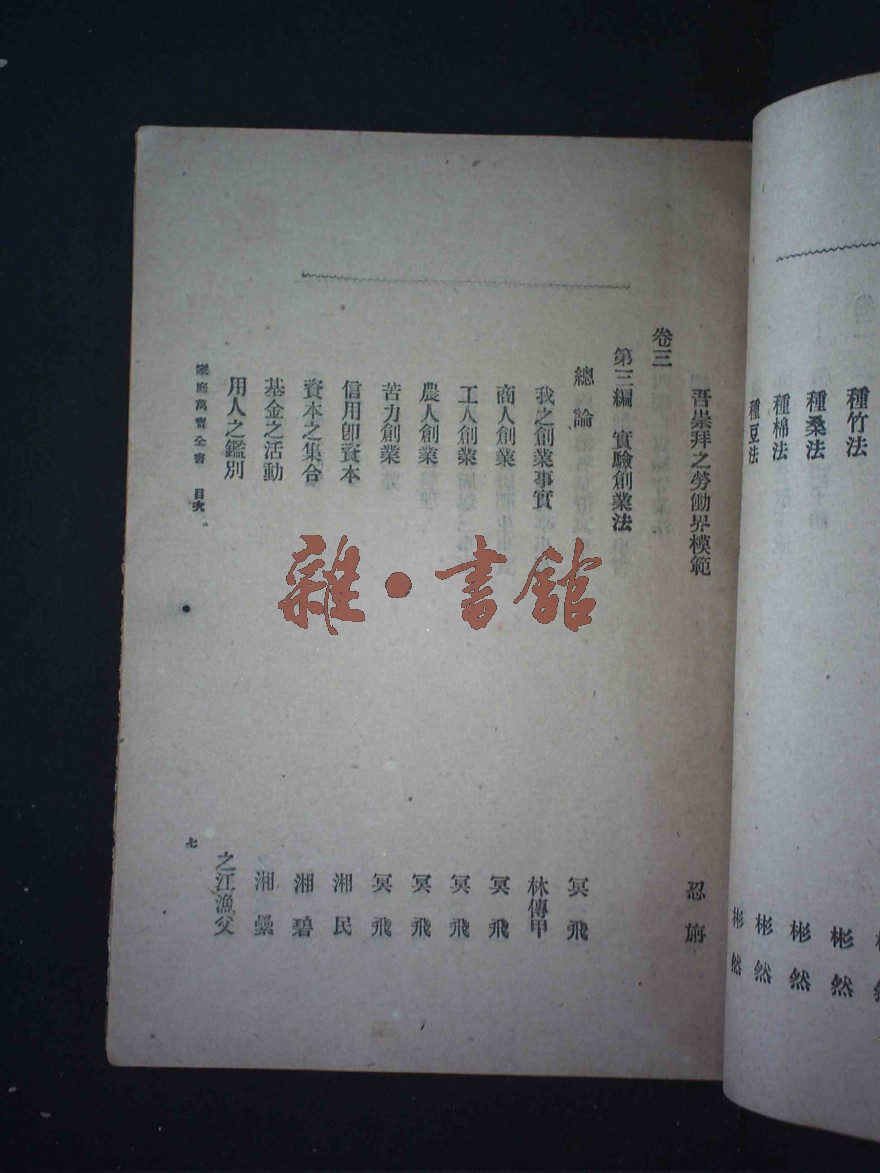 種竹法 彬然
種桑法 彬然
種棉法 彬然
種豆法 彬然
吾崇拜之勞働界模範 忍旃
卷三
第三編 實驗創業法
總論 冥飛
我之創業事實 林傳甲
商人創業 冥飛
工人創業 冥飛
農人創業 冥飛
苦力創業 冥飛
信用卽資本 湘民
資本之集合 湘碧
基金之活動 湘纍
用人之鑑別 之江漁父
家庭萬寶全書 目次 七
雜·書館